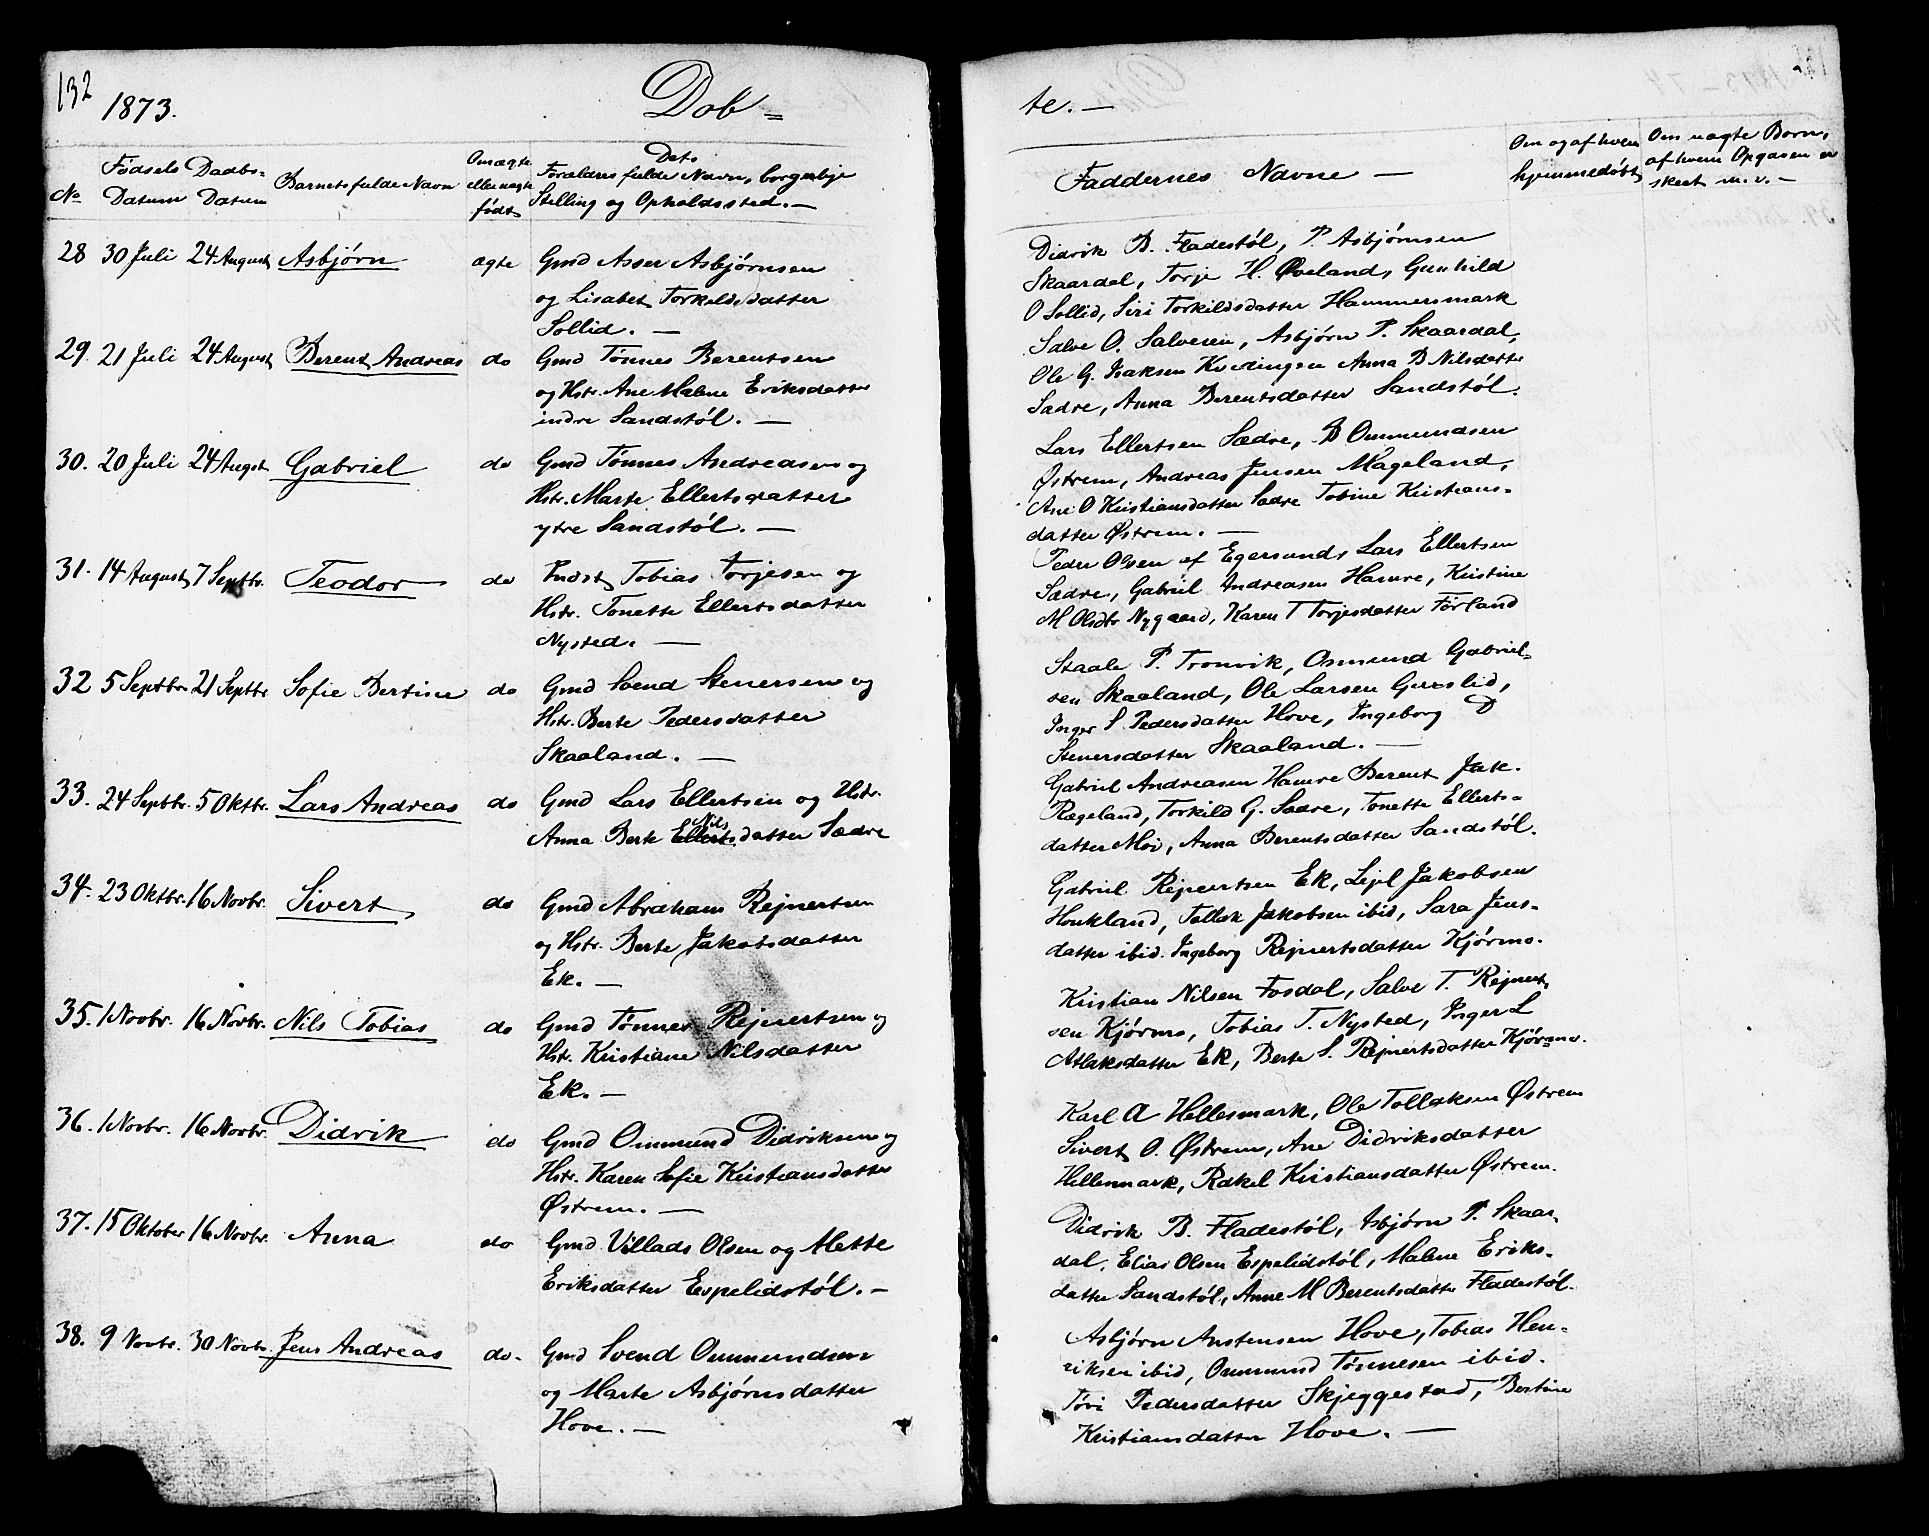 132
1873.
Døb =
No
Fødsels Datum
Daabs= Datum
Barnets fulde Navn
Om ægte eller uægte født
Dets Forældres fulde Navn, borgerlige Stilling og Opholdssted. —
28 30 Juli 24 August Asbjørn ægte Gmd Asser Asbjørnsen
og Lisabet Torkildsdatter
Sollid. —
29. 21 Juli 24 August Berent Andreas do Gmd Tønnes Berentsen
og Hstr. Ane Malene Eriksdatter
indre Sandstøl. —
30. 20 Juli 24 Augst Gabriel do Gmd Tønnes Andreasen og
Hstr. Marte Ellertsdatter
ytre Sandstøl. —
31. 14 August 7 Septbr. Teodor do Tobias Torjesen og
Hstr. Tonette Ellertsdatter
Nysted. —
32 5 Septbr 21 Septbr Sofie Bertine do Gmd Svend Stenersen og
Hstr. Berte Pedersdatter
Skaaland. —
33. 24 Septbr. 5 Oktbr. Lars Andreas do Gmd Lars Ellertsen og Hstr.
Nils
Anna Berte Ellertsdatter Sædre
34. 23 Oktbr. 16 Novbr. Sivert do Gmd Abraham Rejnertsen
og Hstr. Berte Jakobsdatter
Ek. —
35. 1 Novbr. 16 Novbr. Nils Tobias do Gmd Tønnes Rejnertsen og
Hstr. Kristiane Nilsdatter
Ek. —
36. 1 Novbr. 16 Novbr. Didrik do Gmd Ommund Didriksen og
Hstr. Karen Sofie Kristiansdatter
Østrem. —
37. 15 Oktober 16 Novbr. Anna do Gmd. Villads Olsen og Mette
Eriksdatter Espelidstøl. —
38. 9 Novbr. 30 Novbr. Jens Andreas do. Gmd Svend Ommundsen
og Marte Asbjørnsdatter
Hove. —
te. —
Faddernes Navne —
Om og af hvem hjemmedøbt
Om uægte Børn, af hvem Opgaven er skeet m. v. —
Didrik B. Fladestøl, P. Asbjørnsen
Skaardal, Torje H. Øveland, Gunhild
O Sollid, Siri Torkildsdatter Hammersmark
Salve O. Salvesen, Asbjørn P. Skaardal,
Ole G. Isaksen Kvedingen Anna B Nilsdatter
Sædre, Anna Berentsdatter Sandstøl.
Lars Ellertsen Sædre, D Ommundsen
Østrem, Andreas Jensen Mageland,
Ane O Kristiansdatter Sædre Tobine Kristians=
datter Østrem. —
Peder Olsen af Egersund, Lars Ellertsen
Sædre, Gabriel Andreasen Hamre, Kristine
M Olsdtr Nygaard, Karen T Torjesdatter Førland
Staale P. Tronvik, Osmund Gabriel=
sen Skaaland, Ole Larsen Gyreslid,
Inger S. Pedersdatter Hove, Ingeborg D
Stenersdatter Skaaland. —
Gabriel Andreasen Hamre Berent Jak.
Rægeland, Torkild G. Sædre, Tonette Ellerts=
datter Moi, Anna Berentsdatter Sandstøl.
Gabriel Rejnertsen Ek, Jakobsen
Houkland, Tollak Jakobsen ibid, Sara Jens=
datter ibid. Ingeborg Rejnertsdatter Kjørmo.
Kristian Nilsen Fosdal, Salve T. Rejnert
sen Kjørmo, Tobias T. Nysted, Inger L
Atlaksdatter Ek, Berte S. Rejnertsdatter Kjørmo.
Karl A Hellesmark, Ole Tollaksen Østrem
Sivert O. Østrem, Ane Didriksdatter
Hellesmark, Rakel Kristiansdatter Østrem.
Didrik B. Fladestøl, Asbjørn P. Skaar
dal, Elias Olsen Espelidstøl, Malene Eriks=
datter Sandstøl, Anne M Berentsdatter Fladestøl.
Asbjørn Anstensen Hove, Tobias Hen=
riksen ibid, Ommund Tønnesen ibid.
Tøri Pedersdatter Skjeggestad, Bertine
Kristiansdatter Hove. —